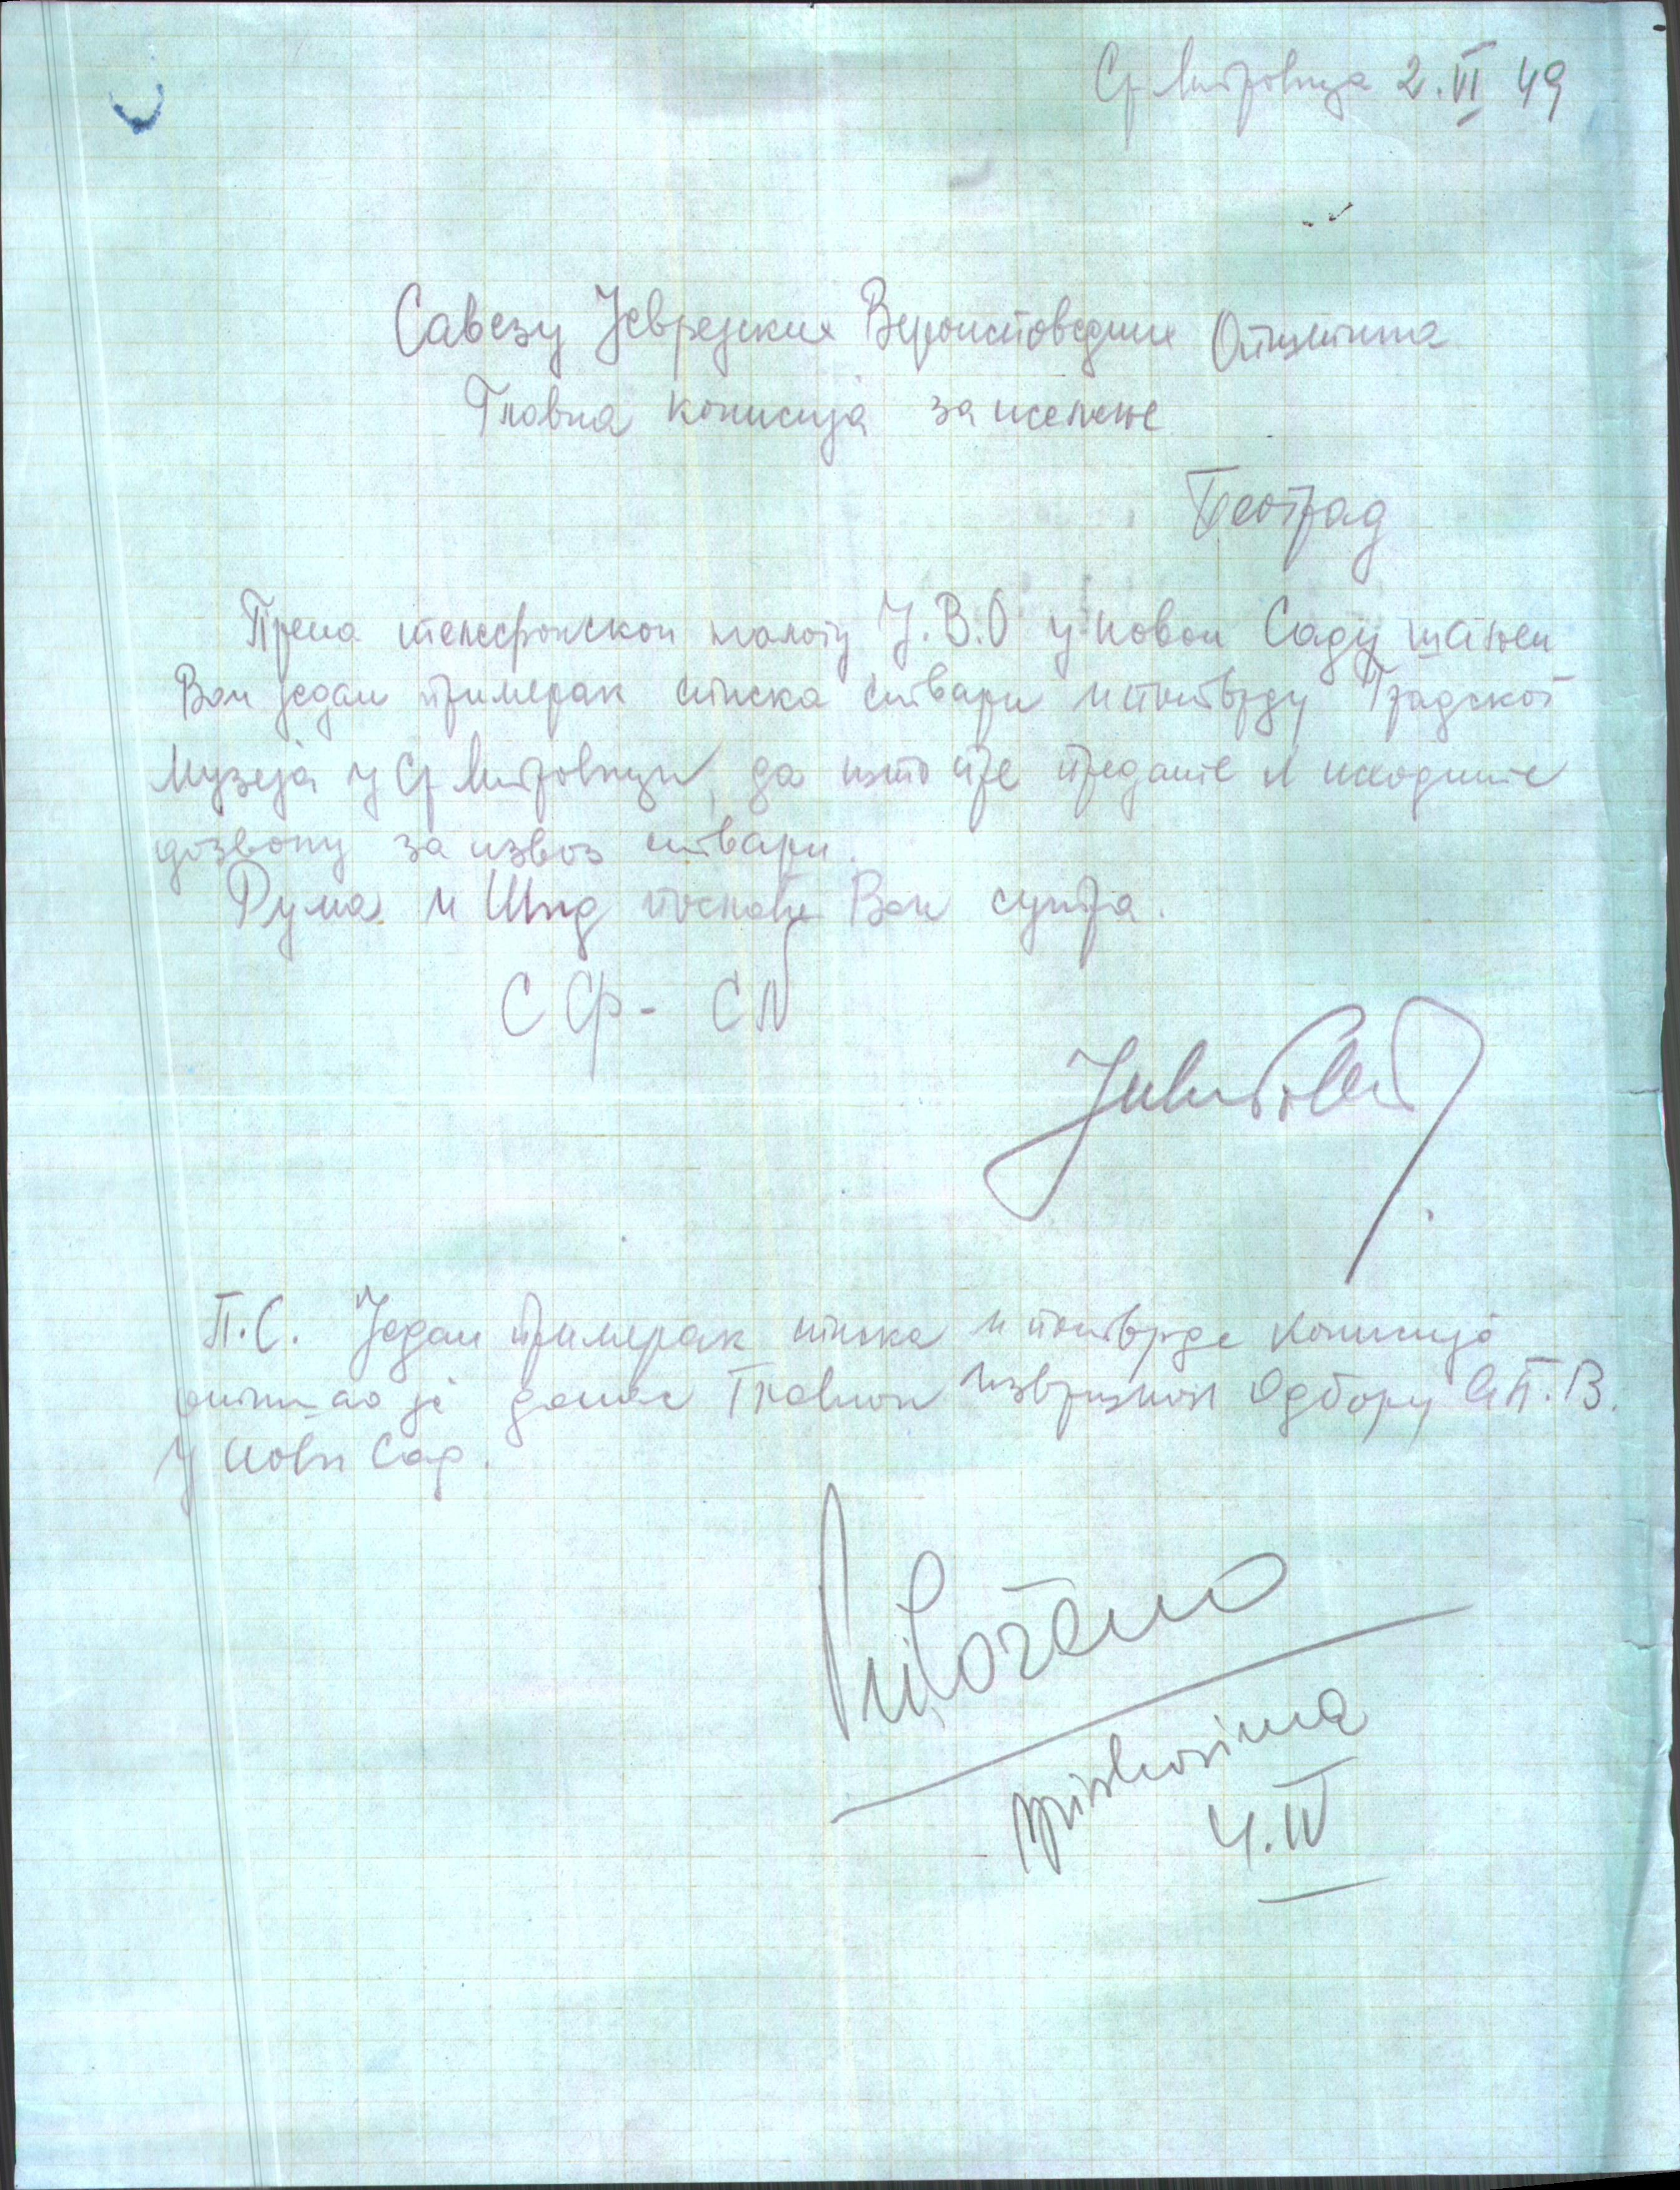 Ср Митровица 2. VI 49
Савезу Јеврејских Вероисповедних Општина
Главна комисија за исељење
Београд
Према телефонском налогу Ј.В.О у Новом Саду шаљем
Вам један примерак списка ствари и потврду Градског
Музеја у Ср Митровици, да што пре предате и исходите
дозволу за извоз ствари.
Рума и Шид послаће Вам сутра.
С Ф - С Н
П.С. Један примерак списка и потврде Комисија
је данас Главном Извршном Одбору А.П.В.
у Нови Сад.
Priloženo
spiskovima
4. IV